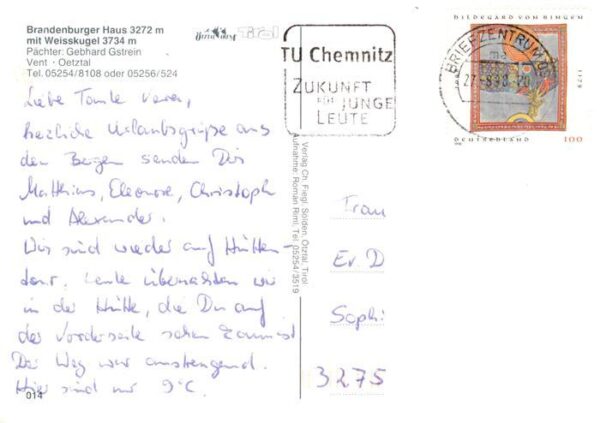 Brandenburger Haus 3272 m
mit Weisskugel 3734 m
Pächter: Gebhard Gstrein
Vent · Oetztal
Tel. 05254/8108 oder 05256/524
Tirol
TU Chemnitz
ZUKUNFT
FÜR JUNGE
LEUTE
HILDEGARD VON BINGEN
BRIEFZENTRUM
DEUTSCHLAND 100
Liebe Tante Vera,
herzliche Urlaubsgrüße aus
den Bergen senden Dir
Matthias, Eleonore, Christoph
und Alexander.
Wir sind wieder auf Hütten-
tour. Heute übernachten wir
in der Hütte, die Du auf
der Vorderseite sehen kannst
Der Weg war anstrengend.
Hier sind nur 9°C.
014
Verlag Ch. Fiegl, Sölden, Ötztal, Tirol
Aufnahme: Roman Riml, Tel. 05254/3519
Frau
Ev. D
Sophi
3275